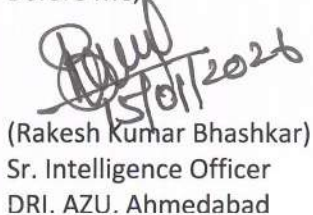 15/01/2026
(Rakesh Kumar Bhashkar)
Sr. Intelligence Officer
DRI, AZU, Ahmedabad